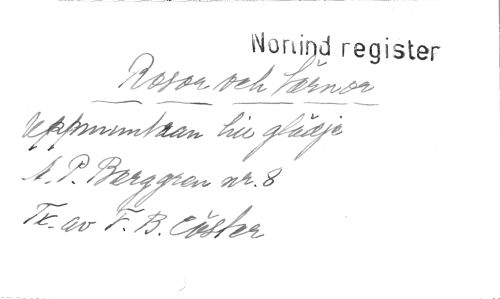 Norlind register
Rosor och tärnor
uppmuntran till glädje
A. P. Berggren nr. 8
Tx. av F. B. Cöster